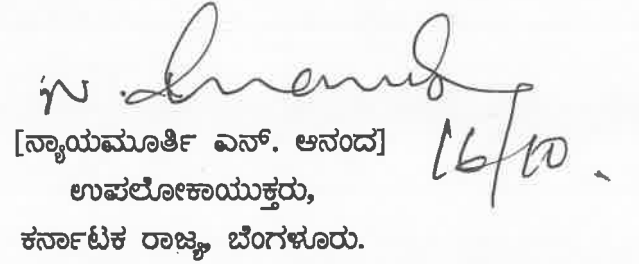 N. Anand
16/10.
[ನ್ಯಾಯಮೂರ್ತಿ ಎನ್. ಆನಂದ]
ಉಪಲೋಕಾಯುಕ್ತರು,
ಕರ್ನಾಟಕ ರಾಜ್ಯ, ಬೆಂಗಳೂರು.